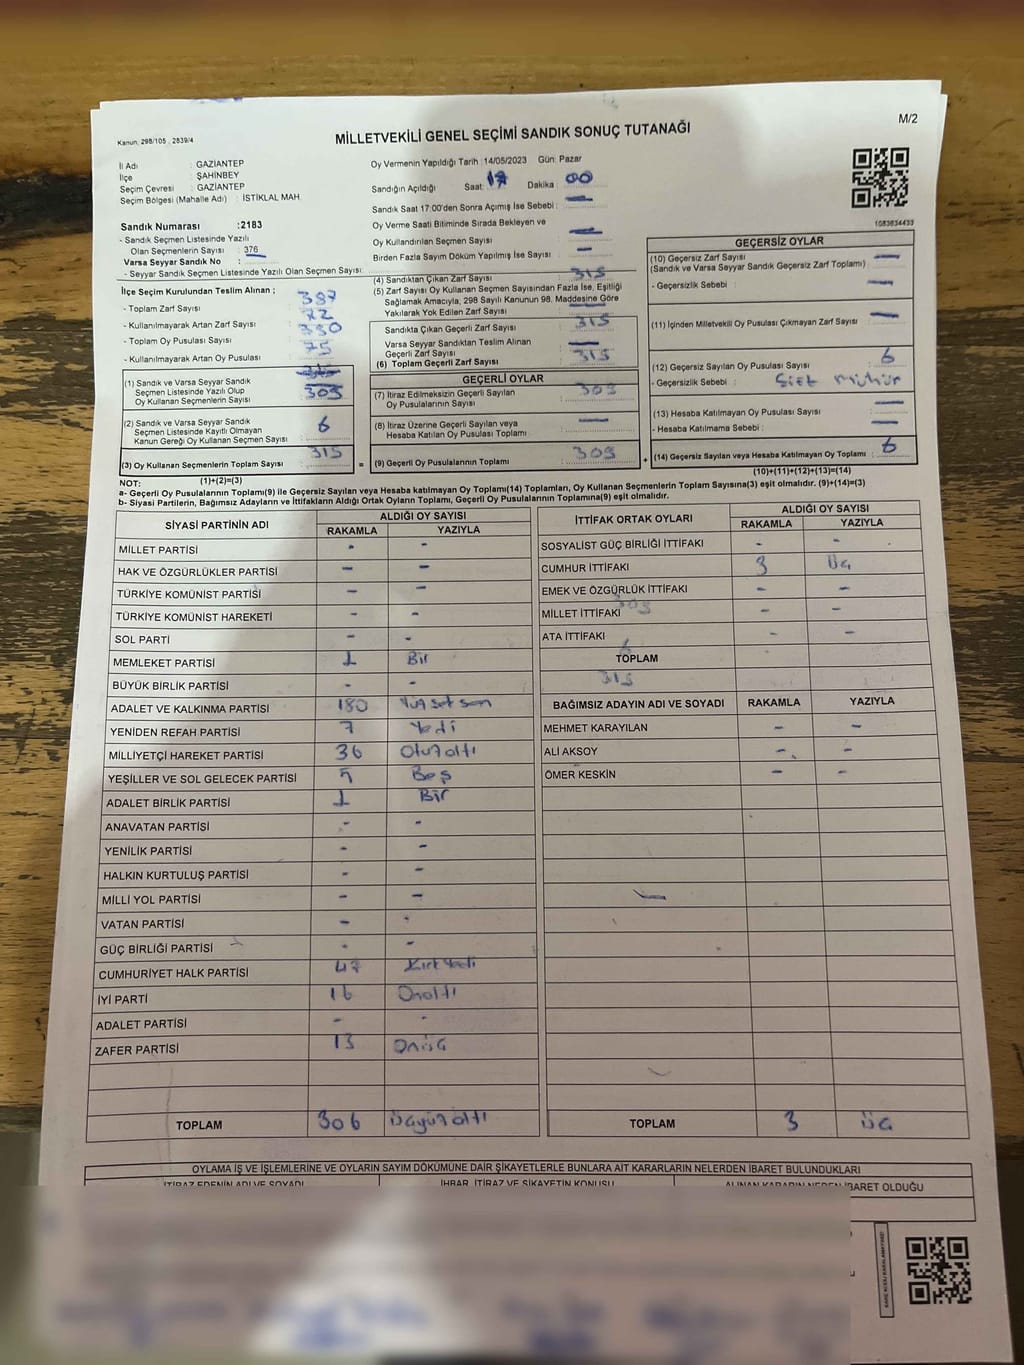 M/2
Kanun. 298/105 . 2839/4
MİLLETVEKİLİ GENEL SEÇİMİ SANDIK SONUÇ TUTANAĞI
İl Adı : GAZIANTEP
İlçe : ŞAHİNBEY
Seçim Çevresi : GAZİANTEP
Seçim Bölgesi (Mahalle Adı) : İSTİKLAL MAH
Oy Vermenin Yapıldığı Tarih :14/05/2023 Gün: Pazar
Sandığın Açıldığı Saat: 17 Dakika : 00
Sandık Saat 17:00'den Sonra Açımış İse Sebebi : —
Oy Verme Saati Bitiminde Sırada Bekleyen ve
Oy Kullandırılan Seçmen Sayısı —
Birden Fazla Sayım Döküm Yapılmış İse Sayısı : —
1083634433
Sandık Numarası :2183
- Sandık Seçmen Listesinde Yazılı
Olan Seçmenlerin Sayısı : 376
Varsa Seyyar Sandık No :
- Seyyar Sandık Seçmen Listesinde Yazılı Olan Seçmen Sayısı :
İlçe Seçim Kurulundan Teslim Alınan ;
- Toplam Zarf Sayısı : 387
- Kullanılmayarak Artan Zarf Sayısı : 72
- Toplam Oy Pusulası Sayısı : 390
- Kullanılmayarak Artan Oy Pusulası : 75
(1) Sandık ve Varsa Seyyar Sandık
Seçmen Listesinde Yazılı Olup
Oy Kullanan Seçmenlerin Sayısı : 309
(2) Sandık ve Varsa Seyyar Sandık
Seçmen Listesinde Kayıtlı Olmayan
Kanun Gereği Oy Kullanan Seçmen Sayısı : 6
(3) Oy Kullanan Seçmenlerin Toplam Sayısı : 315
(4) Sandıktan Çıkan Zarf Sayısı : 315
(5) Zarf Sayısı Oy Kullanan Seçmen Sayısından Fazla İse, Eşitliği
Sağlamak Amacıyla, 298 Sayılı Kanunun 98. Maddesine Göre
Yakılarak Yok Edilen Zarf Sayısı : —
Sandıkta Çıkan Geçerli Zarf Sayısı : 315
Varsa Seyyar Sandıktan Teslim Alınan
Geçerli Zarf Sayısı : —
(6) Toplam Geçerli Zarf Sayısı : 315
GEÇERLİ OYLAR
(7) İtiraz Edilmeksizin Geçerli Sayılan
Oy Pusulalarının Sayısı : 309
(8) İtiraz Üzerine Geçerli Sayılan veya
Hesaba Katılan Oy Pusulası Toplamı : —
= (9) Geçerli Oy Pusulalarının Toplamı : 309 +
GEÇERSİZ OYLAR
(10) Geçersiz Zarf Sayısı : —
(Sandık ve Varsa Seyyar Sandık Geçersiz Zarf Toplamı)
- Geçersizlik Sebebi : —
(11) İçinden Milletvekili Oy Pusulası Çıkmayan Zarf Sayısı : —
(12) Geçersiz Sayılan Oy Pusulası Sayısı : 6
- Geçersizlik Sebebi : Çift mühür
(13) Hesaba Katılmayan Oy Pusulası Sayısı : —
- Hesaba Katılmama Sebebi : —
(14) Geçersiz Sayılan veya Hesaba Katılmayan Oy Toplamı : 6
NOT: (1)+(2)=(3) (10)+(11)+(12)+(13)=(14)
a- Geçerli Oy Pusulalarının Toplamı(9) ile Geçersiz Sayılan veya Hesaba katılmayan Oy Toplamı(14) Toplamları, Oy Kullanan Seçmenlerin Toplam Sayısına(3) eşit olmalıdır. (9)+(14)=(3)
b- Siyasi Partilerin, Bağımsız Adayların ve İttifakların Aldığı Ortak Oyların Toplamı, Geçerli Oy Pusulalarının Toplamına(9) eşit olmalıdır.
SİYASİ PARTİNİN ADI ALDIĞI OY SAYISI
RAKAMLA YAZIYLA
MİLLET PARTİSİ - -
HAK VE ÖZGÜRLÜKLER PARTİSİ - -
TÜRKİYE KOMÜNİST PARTİSİ - -
TÜRKİYE KOMÜNİST HAREKETİ - -
SOL PARTİ - -
MEMLEKET PARTİSİ 1 Bir
BÜYÜK BİRLİK PARTİSİ - -
ADALET VE KALKINMA PARTİSİ 180 Yüzseksen
YENİDEN REFAH PARTİSİ 7 Yedi
MİLLİYETÇİ HAREKET PARTİSİ 36 Otuzaltı
YEŞİLLER VE SOL GELECEK PARTİSİ 5 Beş
ADALET BİRLİK PARTİSİ 1 Bir
ANAVATAN PARTİSİ - -
YENİLİK PARTİSİ - -
HALKIN KURTULUŞ PARTİSİ - -
MİLLİ YOL PARTİSİ - -
VATAN PARTİSİ - -
GÜÇ BİRLİĞİ PARTİSİ - -
CUMHURİYET HALK PARTİSİ 47 Kırkyedi
İYİ PARTİ 16 Onaltı
ADALET PARTİSİ - -
ZAFER PARTİSİ 13 Onüç
TOPLAM 306 Üçyüzaltı
İTTİFAK ORTAK OYLARI ALDIĞI OY SAYISI
RAKAMLA YAZIYLA
SOSYALİST GÜÇ BİRLİĞİ İTTİFAKI - -
CUMHUR İTTİFAKI 3 Üç
EMEK VE ÖZGÜRLÜK İTTİFAKI - -
MİLLET İTTİFAKI - -
309
ATA İTTİFAKI - -
6
TOPLAM
315
BAĞIMSIZ ADAYIN ADI VE SOYADI RAKAMLA YAZIYLA
MEHMET KARAYILAN - -
ALİ AKSOY - -
ÖMER KESKİN - -
TOPLAM 3 Üç
OYLAMA İŞ VE İŞLEMLERİNE VE OYLARIN SAYIM DÖKÜMÜNE DAİR ŞİKAYETLERLE BUNLARA AİT KARARLARIN NELERDEN İBARET BULUNDUKLARI
İTİRAZ EDENİN ADI VE SOYADI İHBAR, İTİRAZ VE ŞİKAYETİN KONUSU ALINAN KARARIN NEDEN İBARET OLDUĞU